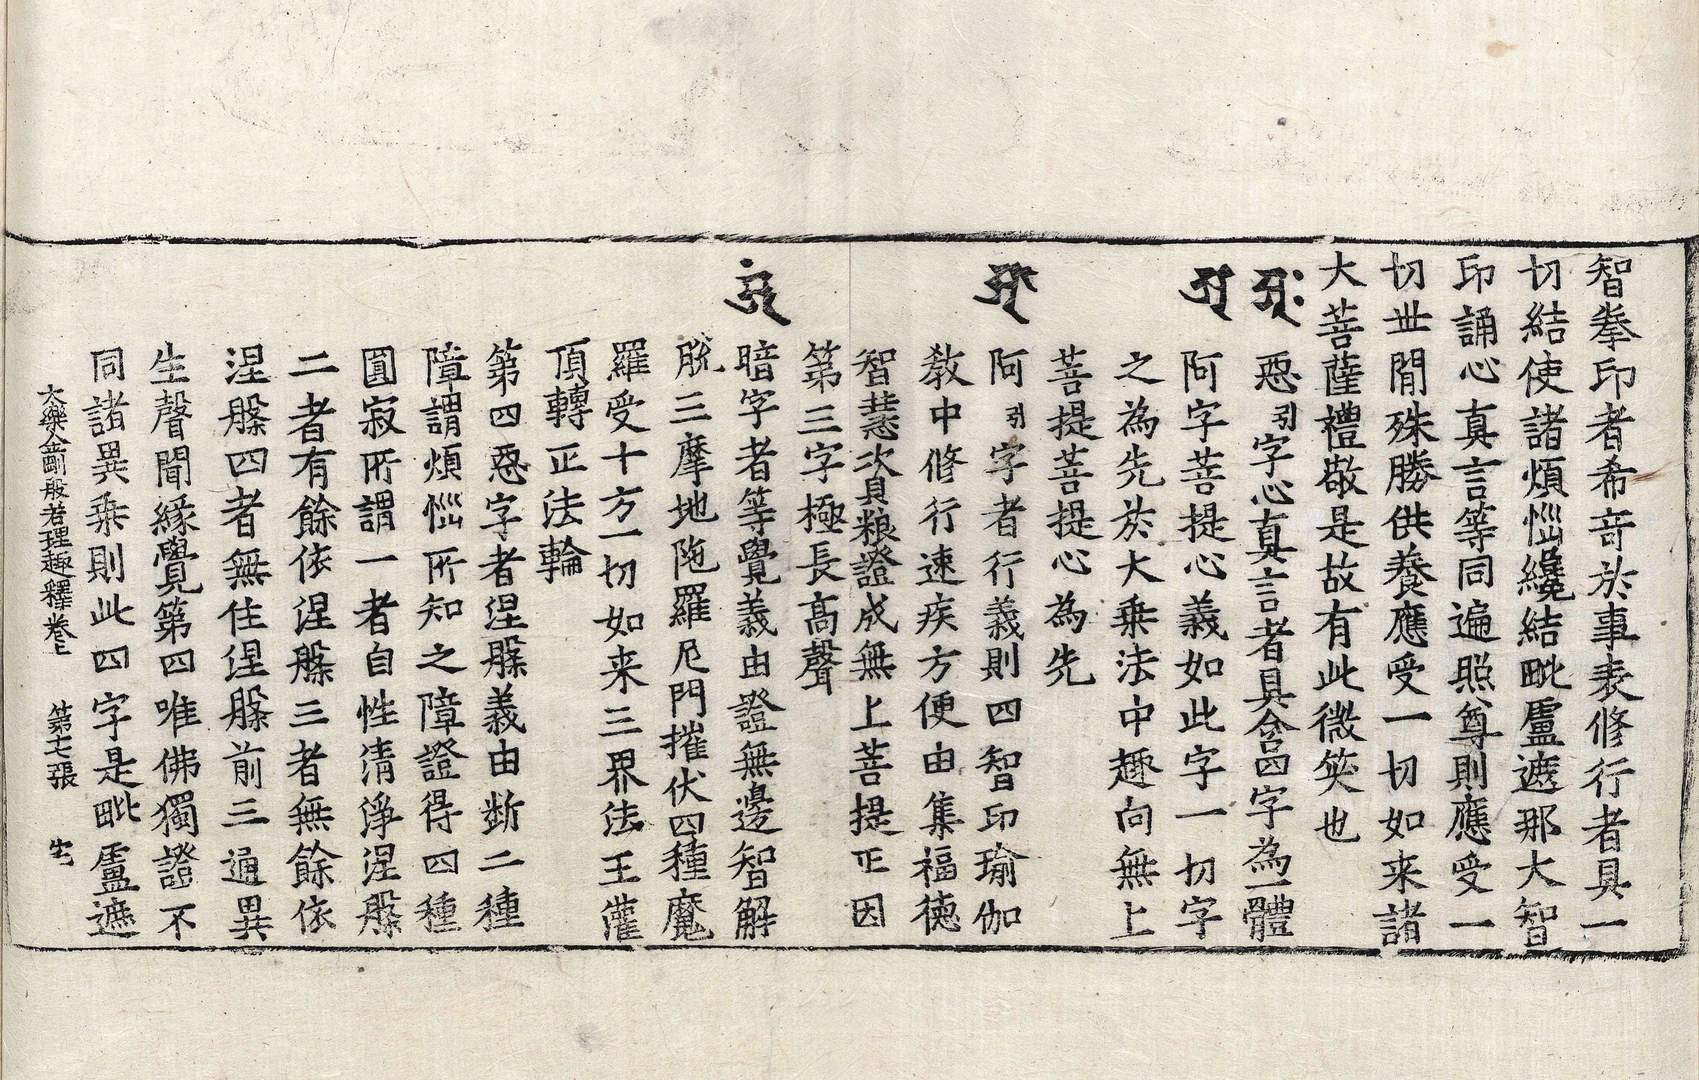 智拳印者希奇於事表修行者具一
切結使諸煩惱纔結毗盧遮那大智
印誦心真言等同遍照尊則應受一
切世間殊勝供養應受一切如来諸
大菩薩禮敬是故有此微笑也
惡引字心真言者具含四字為一體
阿字菩提心義如此字一切字
之為先於大乗法中趣向無上
菩提菩提心為先
阿引字者行義則四智印瑜伽
教中修行速疾方便由集福德
智慧次具粮證成無上菩提正因
第三字極長高聲
暗字者等覺義由證無邊智解
脫三摩地陁羅尼門摧伏四種魔
羅受十方一切如来三界法王灌
頂轉正法輪
第四惡字者涅槃義由斷二種
障謂煩惱所知之障證得四種
圓寂所謂一者自性清淨涅槃
二者有餘依涅槃三者無餘依
涅槃四者無住涅槃前三通異
生聲聞緣覺第四唯佛獨證不
同諸異乗則此四字是毗盧遮
大樂金剛般若理趣釋卷上 第十七張